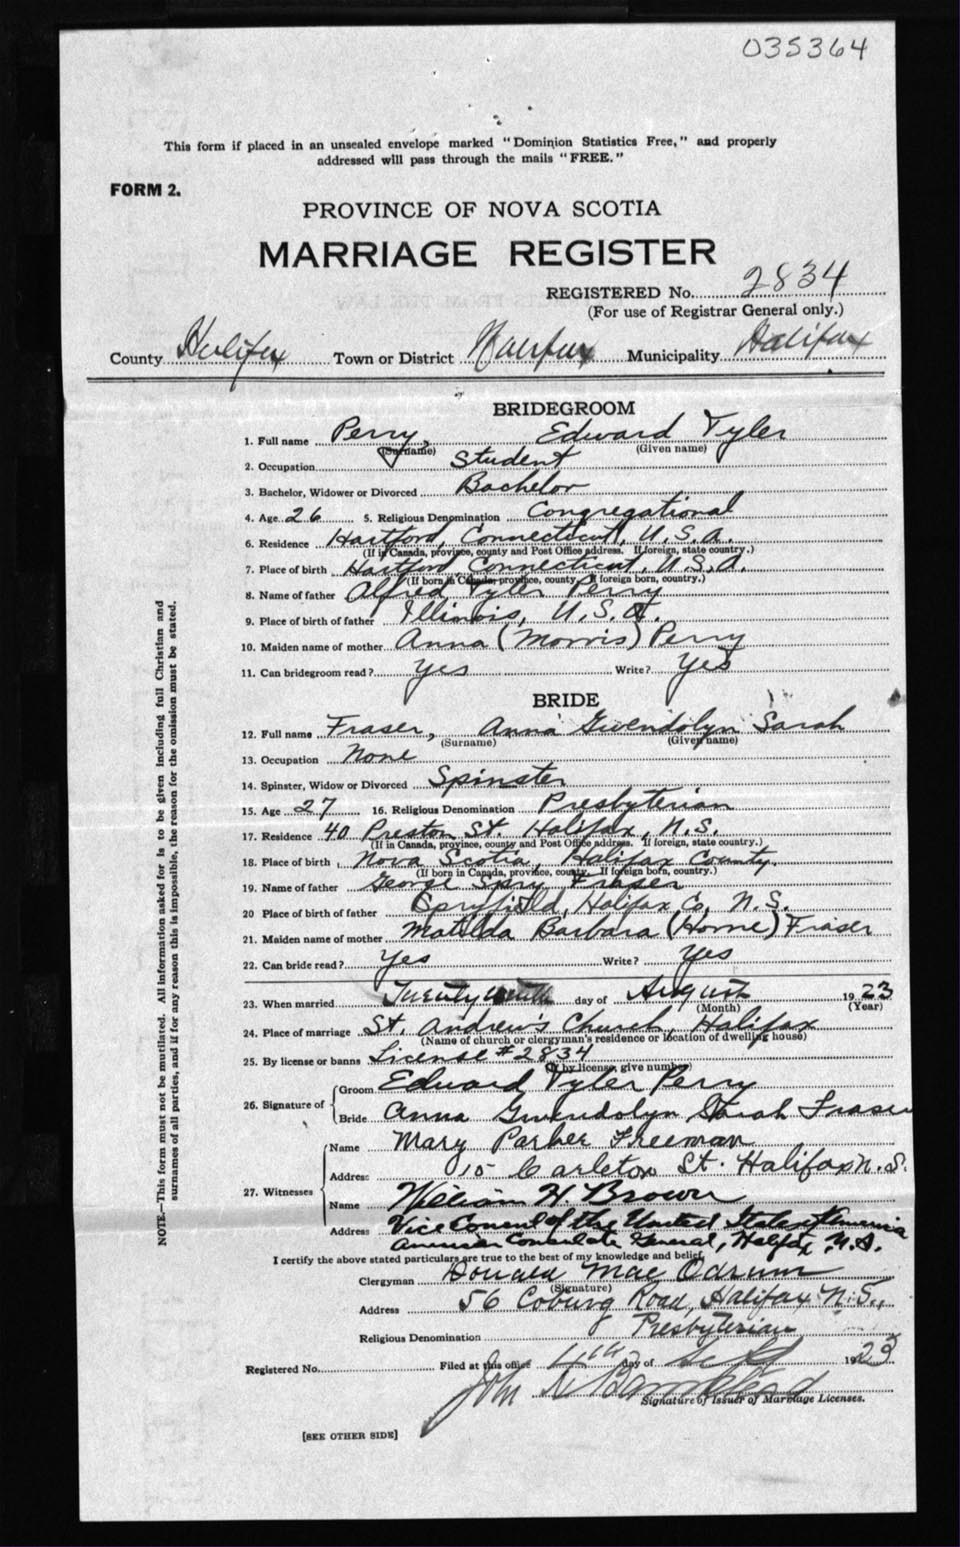 035364
This form if placed in an unsealed envelope marked "Dominion Statistics Free," and properly
addressed will pass through the mails "FREE."
FORM 2.
PROVINCE OF NOVA SCOTIA
MARRIAGE REGISTER
REGISTERED No. 2834
(For use of Registrar General only.)
County Halifax Town or District Halifax Municipality Halifax
BRIDEGROOM
1. Full name Perry, Edward Tyler
(Surname) (Given name)
2. Occupation Student
3. Bachelor, Widower or Divorced Bachelor
4. Age 26 5. Religious Denomination Congregational
6. Residence Hartford, Connecticut, U.S.A.
(If in Canada, province, county and Post Office address. If foreign, state country.)
7. Place of birth Hartford, Connecticut, U.S.A.
(If born in Canada, province, county. If foreign born, country.)
8. Name of father Alfred Tyler Perry
9. Place of birth of father Illinois, U.S.A.
10. Maiden name of mother Anna (Morris) Perry
11. Can bridegroom read? yes Write? yes
BRIDE
12. Full name Fraser, Anna Gwendolyn Sarah
(Surname) (Given name)
13. Occupation None
14. Spinster, Widow or Divorced Spinster
15. Age 27 16. Religious Denomination Presbyterian
17. Residence 40 Preston St. Halifax, N.S.
(If in Canada, province, county and Post Office address. If foreign, state country.)
18. Place of birth Nova Scotia, Halifax County.
(If born in Canada, province, county. If foreign born, country.)
19. Name of father George Spry Fraser
20 Place of birth of father Spryfield, Halifax Co, N.S.
21. Maiden name of mother Matilda Barbara (Horne) Fraser
22. Can bride read? yes Write? yes
23. When married day of August 1923
(Month) (Year)
24. Place of marriage St. Andrew's Church, Halifax
(Name of church or clergyman's residence or location of dwelling house)
25. By license or banns License #2834
(If by license, give number)
26. Signature of Groom Edward Tyler Perry
Bride Anna Gwendolyn Sarah Fraser
27. Witnesses Name Mary Parker Freeman
Address 15 Carleton St. Halifax N.S.
Name William H. Brown
Address Vice Consul of the United States of America
American Consulate General, Halifax, N.S.
I certify the above stated particulars are true to the best of my knowledge and belief,
Clergyman Donald Mac Odrum
(Signature)
Address 56 Coburg Road, Halifax N.S.,
Religious Denomination Presbyterian
Registered No. Filed at this office day of 1923
John
Signature of Issuer of Marriage Licenses.
[SEE OTHER SIDE]
NOTE.—This form must not be mutilated. All information asked for is to be given including full Christian and
surnames of all parties, and if for any reason this is impossible, the reason for the omission must be stated.